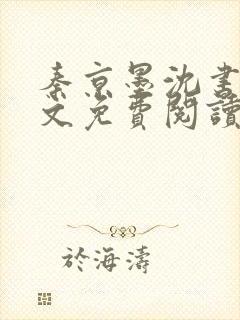 秦京墨沈書
文免費閱讀
於海濤